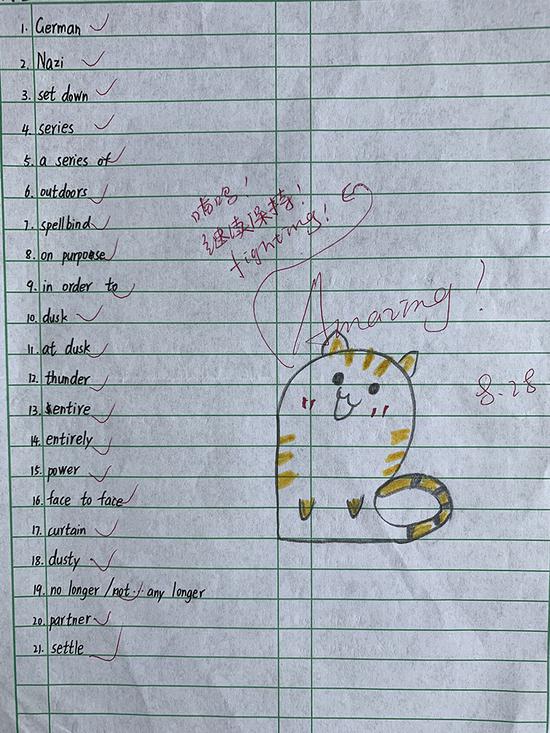 1. German
2. Nazi
3. set down
4. series
5. a series of
6. outdoors
7. spellbind
8. on purpose
9. in order to
10. dusk
11. at dusk
12. thunder
13. entire
14. entirely
15. power
16. face to face
17. curtain
18. dusty
19. no longer /not...any longer
20. partner
21. settle
喵呜！
继续保持！
fighting!
Amazing!
8.28